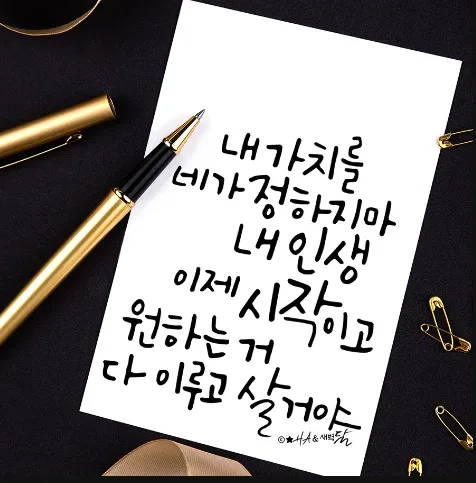 내 가치를
네가 정하지마
내 인생
이제 시작이고
원하는 거
다 이루고 살거야
©★HA & 새벽달